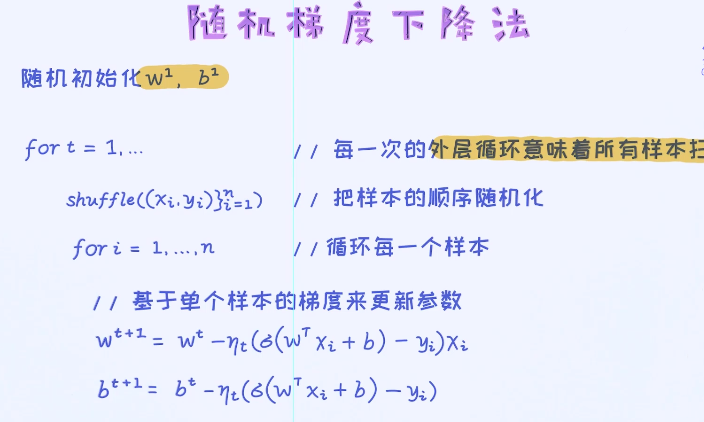 随机梯度下降法
随机初始化 w¹, b¹
for t = 1,... // 每一次的外层循环意味着所有样本扫
shuffle((xᵢ,yᵢ)}ⁿᵢ₌₁) // 把样本的顺序随机化
for i = 1,...,n // 循环每一个样本
// 基于单个样本的梯度来更新参数
wᵗ⁺¹ = wᵗ - ηₜ(σ(wᵀxᵢ + b) - yᵢ)xᵢ
bᵗ⁺¹ = bᵗ - ηₜ(σ(wᵀxᵢ + b) - yᵢ)